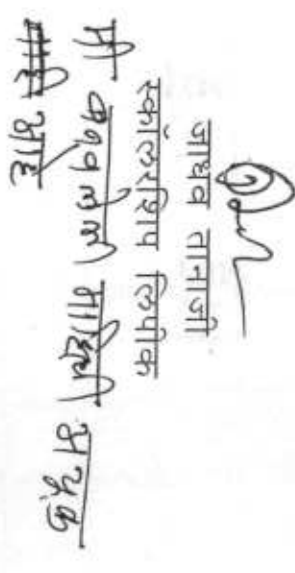 जाधव तानाजी
स्कॉलरशिप लिपीक
मी माहिती अचुक
आहे